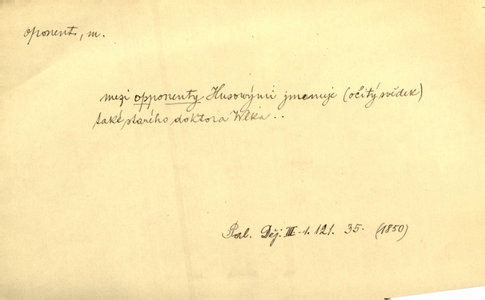 oponent, m.
mezi opponenty Husowými jmenuje (očitý svědek)
také starého doktora Wlka ..
Pal. Děj. III-1. 121. 35. (1850)